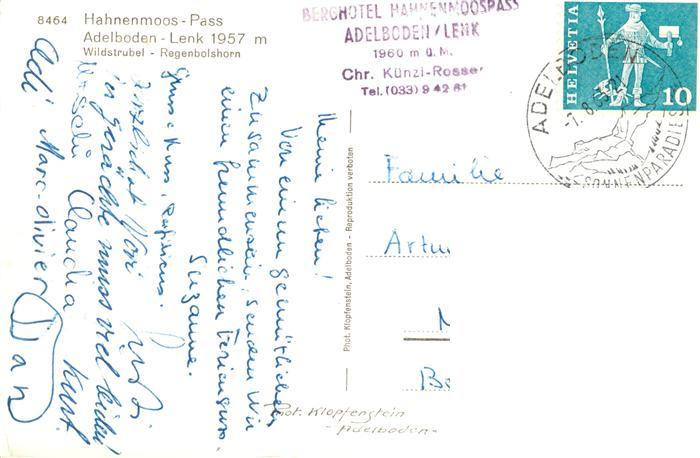 8464 Hahnenmoos - Pass
Adelboden - Lenk 1957 m
Wildstrubel - Regenbolshorn
BERGHOTEL HAHNENMOOSPASS
ADELBODEN / LENK
1960 m ü. M.
Chr. Künzi-Rosser
Tel. (033) 9 42 61
HELVETIA
10
ADELBODEN
-7.8.
SONNENPARADIES
Meine lieben!
Von einem gemütlichen
Zusammensein, senden wir
einen freundlichen Feriengruss,
Suzanne.
Gruss + Kuss,
Herzlichst
in Gedanken muss viel leiden
Claudia Kurt
Adi Marc-Olivier
Phot. Klopfenstein, Adelboden - Reproduktion verboten
Familie
Artu
M
Be
Phot. Klopfenstein
- Adelboden -